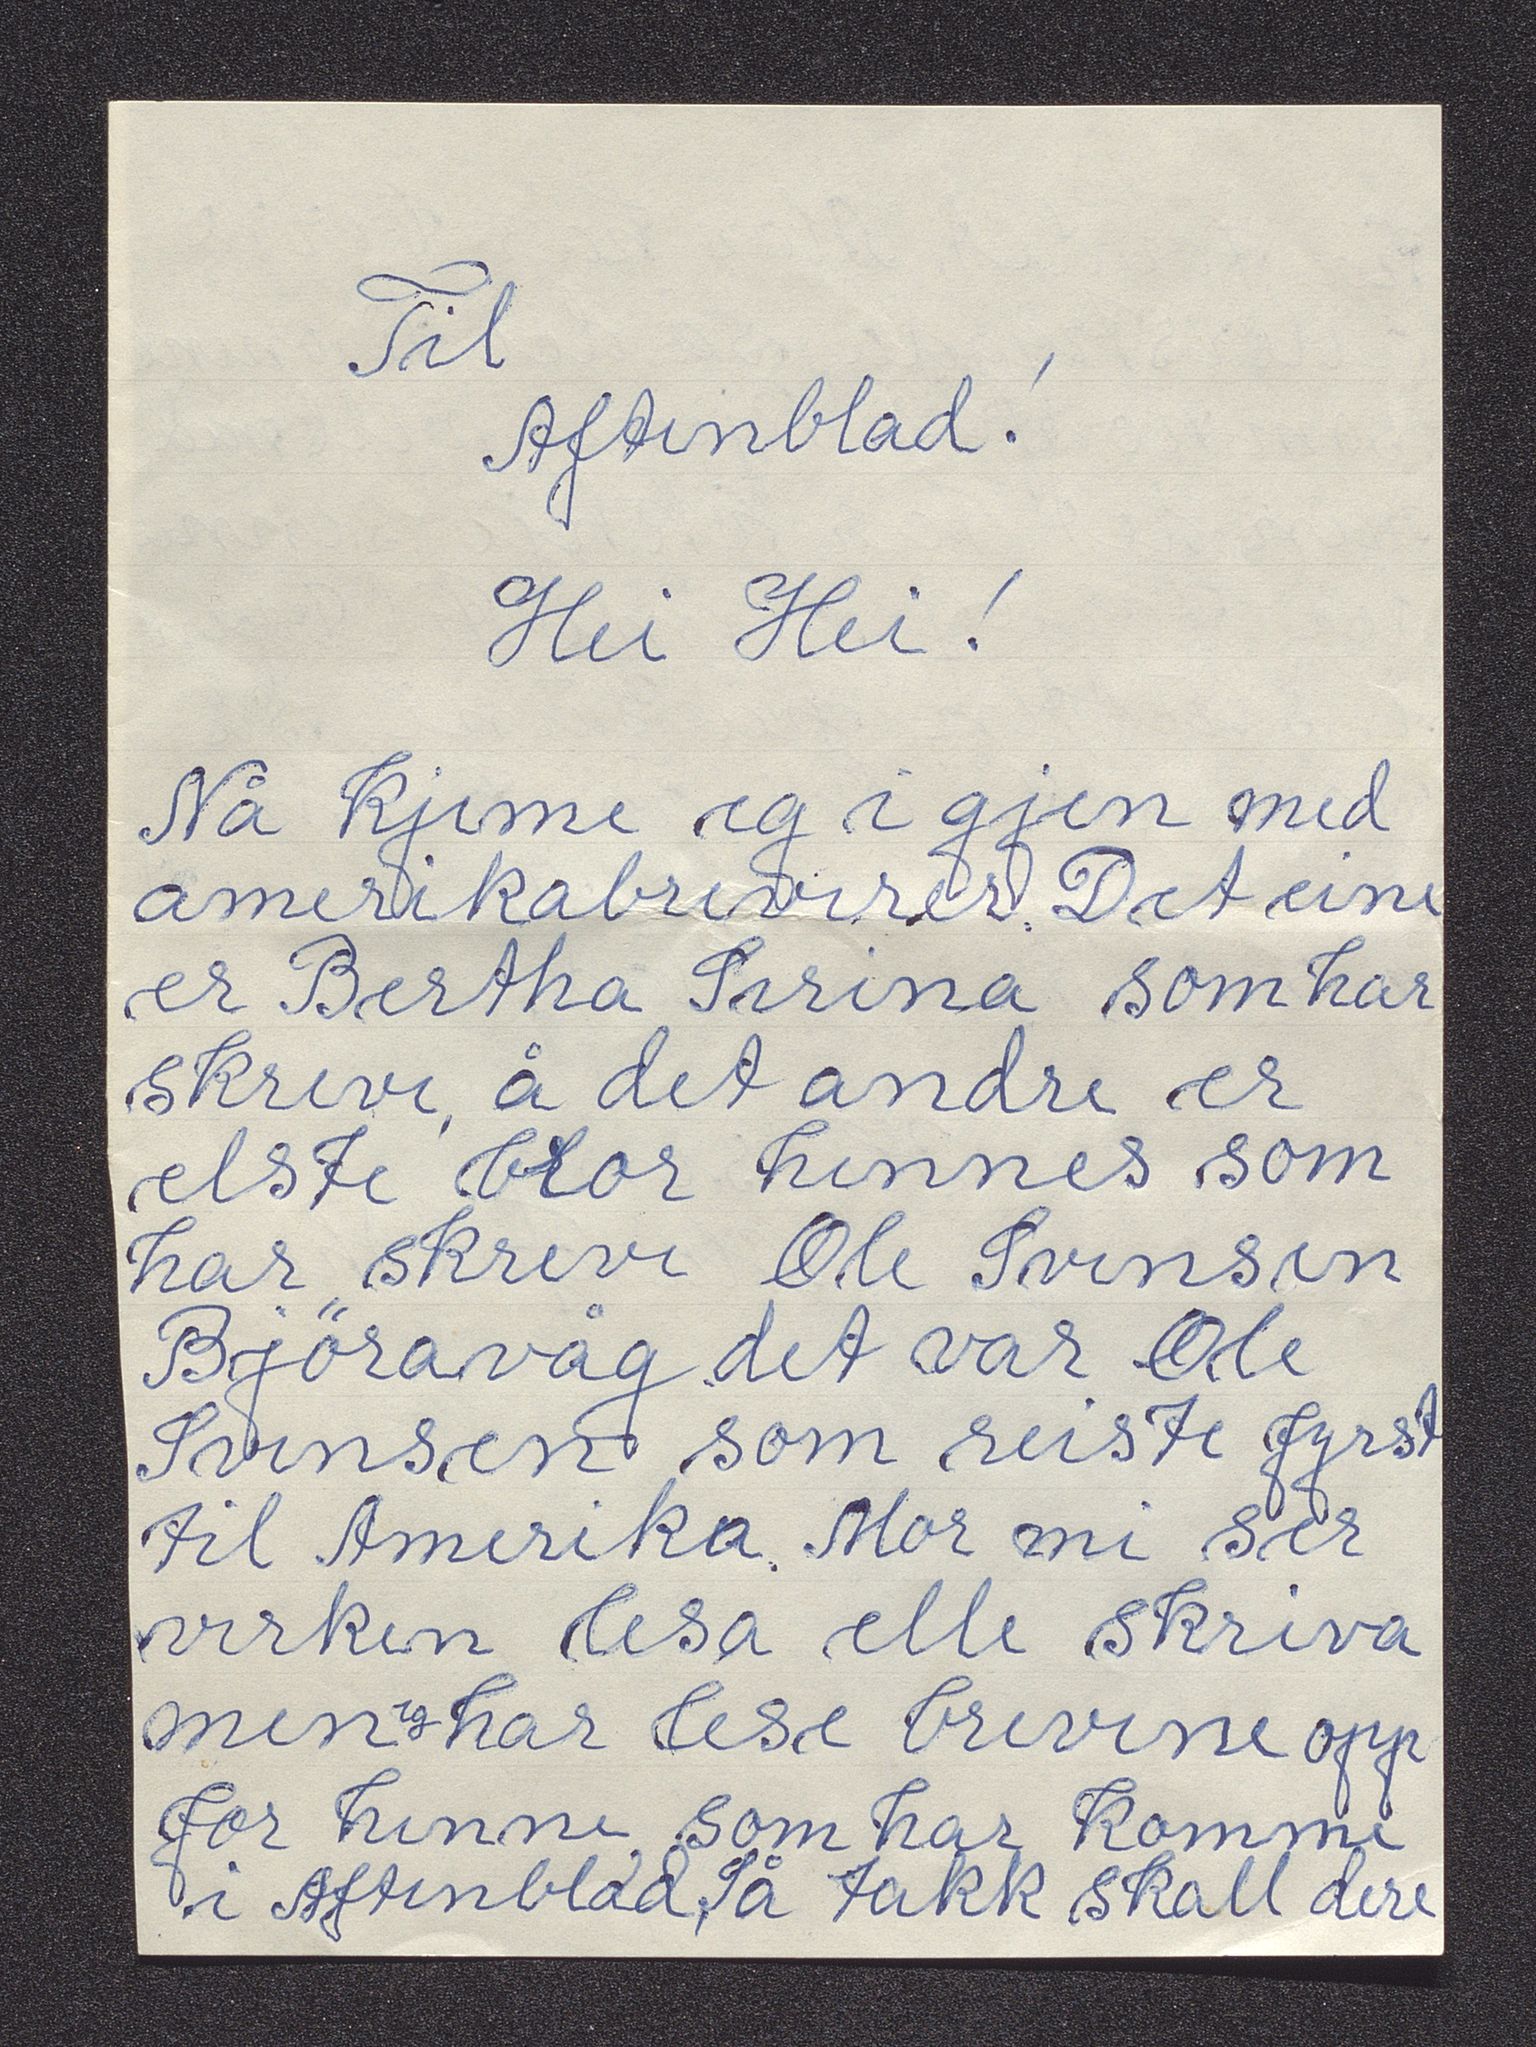 Til
Aftenblad!
Hei Hei!
Nå kjeme eg i gjen med
amerikabreverer. Det eine
er Bertha Serina som har
skreve, å det andre er
elste bror hennes som
har skreve Ole Svensen
Björavåg det var Ole
Svensen som reiste fyrst
til Amerika. Mor mi ser
verken lesa elle skriva
men eg har lese brevene opp
for henne som har komme
i Aftenblad, Så takk skall dere